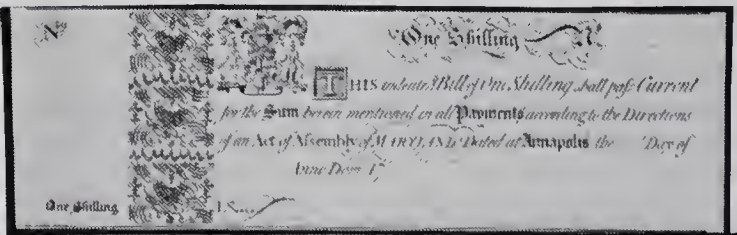 N
One Shilling N
THIS indented Bill of One Shilling shall pass Current
for the Sum herein mentioned in all Payments according to the Directions
of an Act of Assembly of MARYLAND Dated at Annapolis the Day of
Anno Dom. 17
One Shilling 1.S